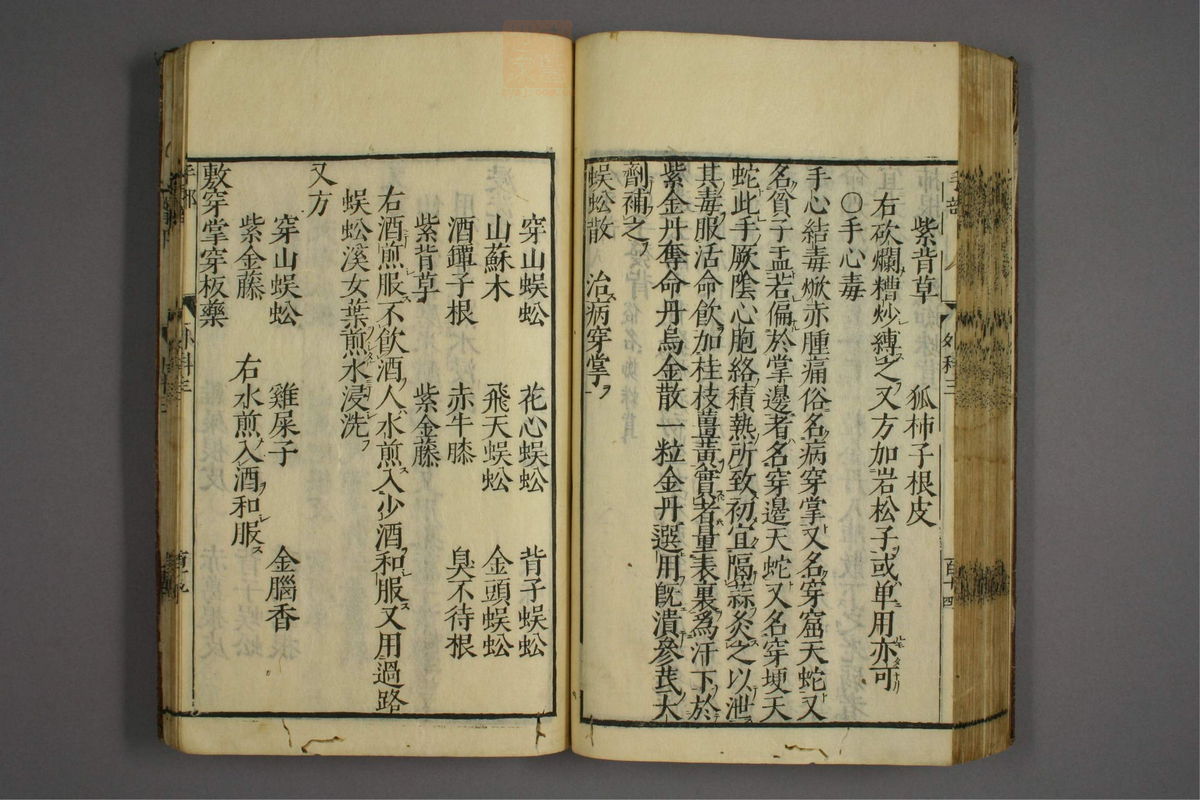 紫背草 狐柿子根皮
右砍爛糟炒縛之又方加岩松子或单用亦可
〇手心毒
手心結毒焮赤腫痛俗名病穿掌又名穿窟天蛇又
名貧子盂若偏於掌邊者名穿邊天蛇又名穿埂天
蛇此手厥陰心胞絡積熱所致初宜隔蒜灸之以泄
其毒服活命飲加桂枝薑黃實者量表裏爲汗下於
紫金丹奪命丹烏金散一粒金丹選用旣潰參芪大
劑補之
蜈蚣散 治病穿掌
穿山蜈蚣 花心蜈蚣 背子蜈蚣
山蘇木 飛天蜈蚣 金頭蜈蚣
酒罈子根 赤牛膝 臭不待根
紫背草 紫金藤
右酒煎服不飲酒人水煎入少酒和服又用過路
蜈蚣溪女葉煎水浸洗
又方
穿山蜈蚣 雞屎子 金腦香
紫金藤 右水煎入酒和服
敷穿掌穿板藥
手部 外科三 百十四